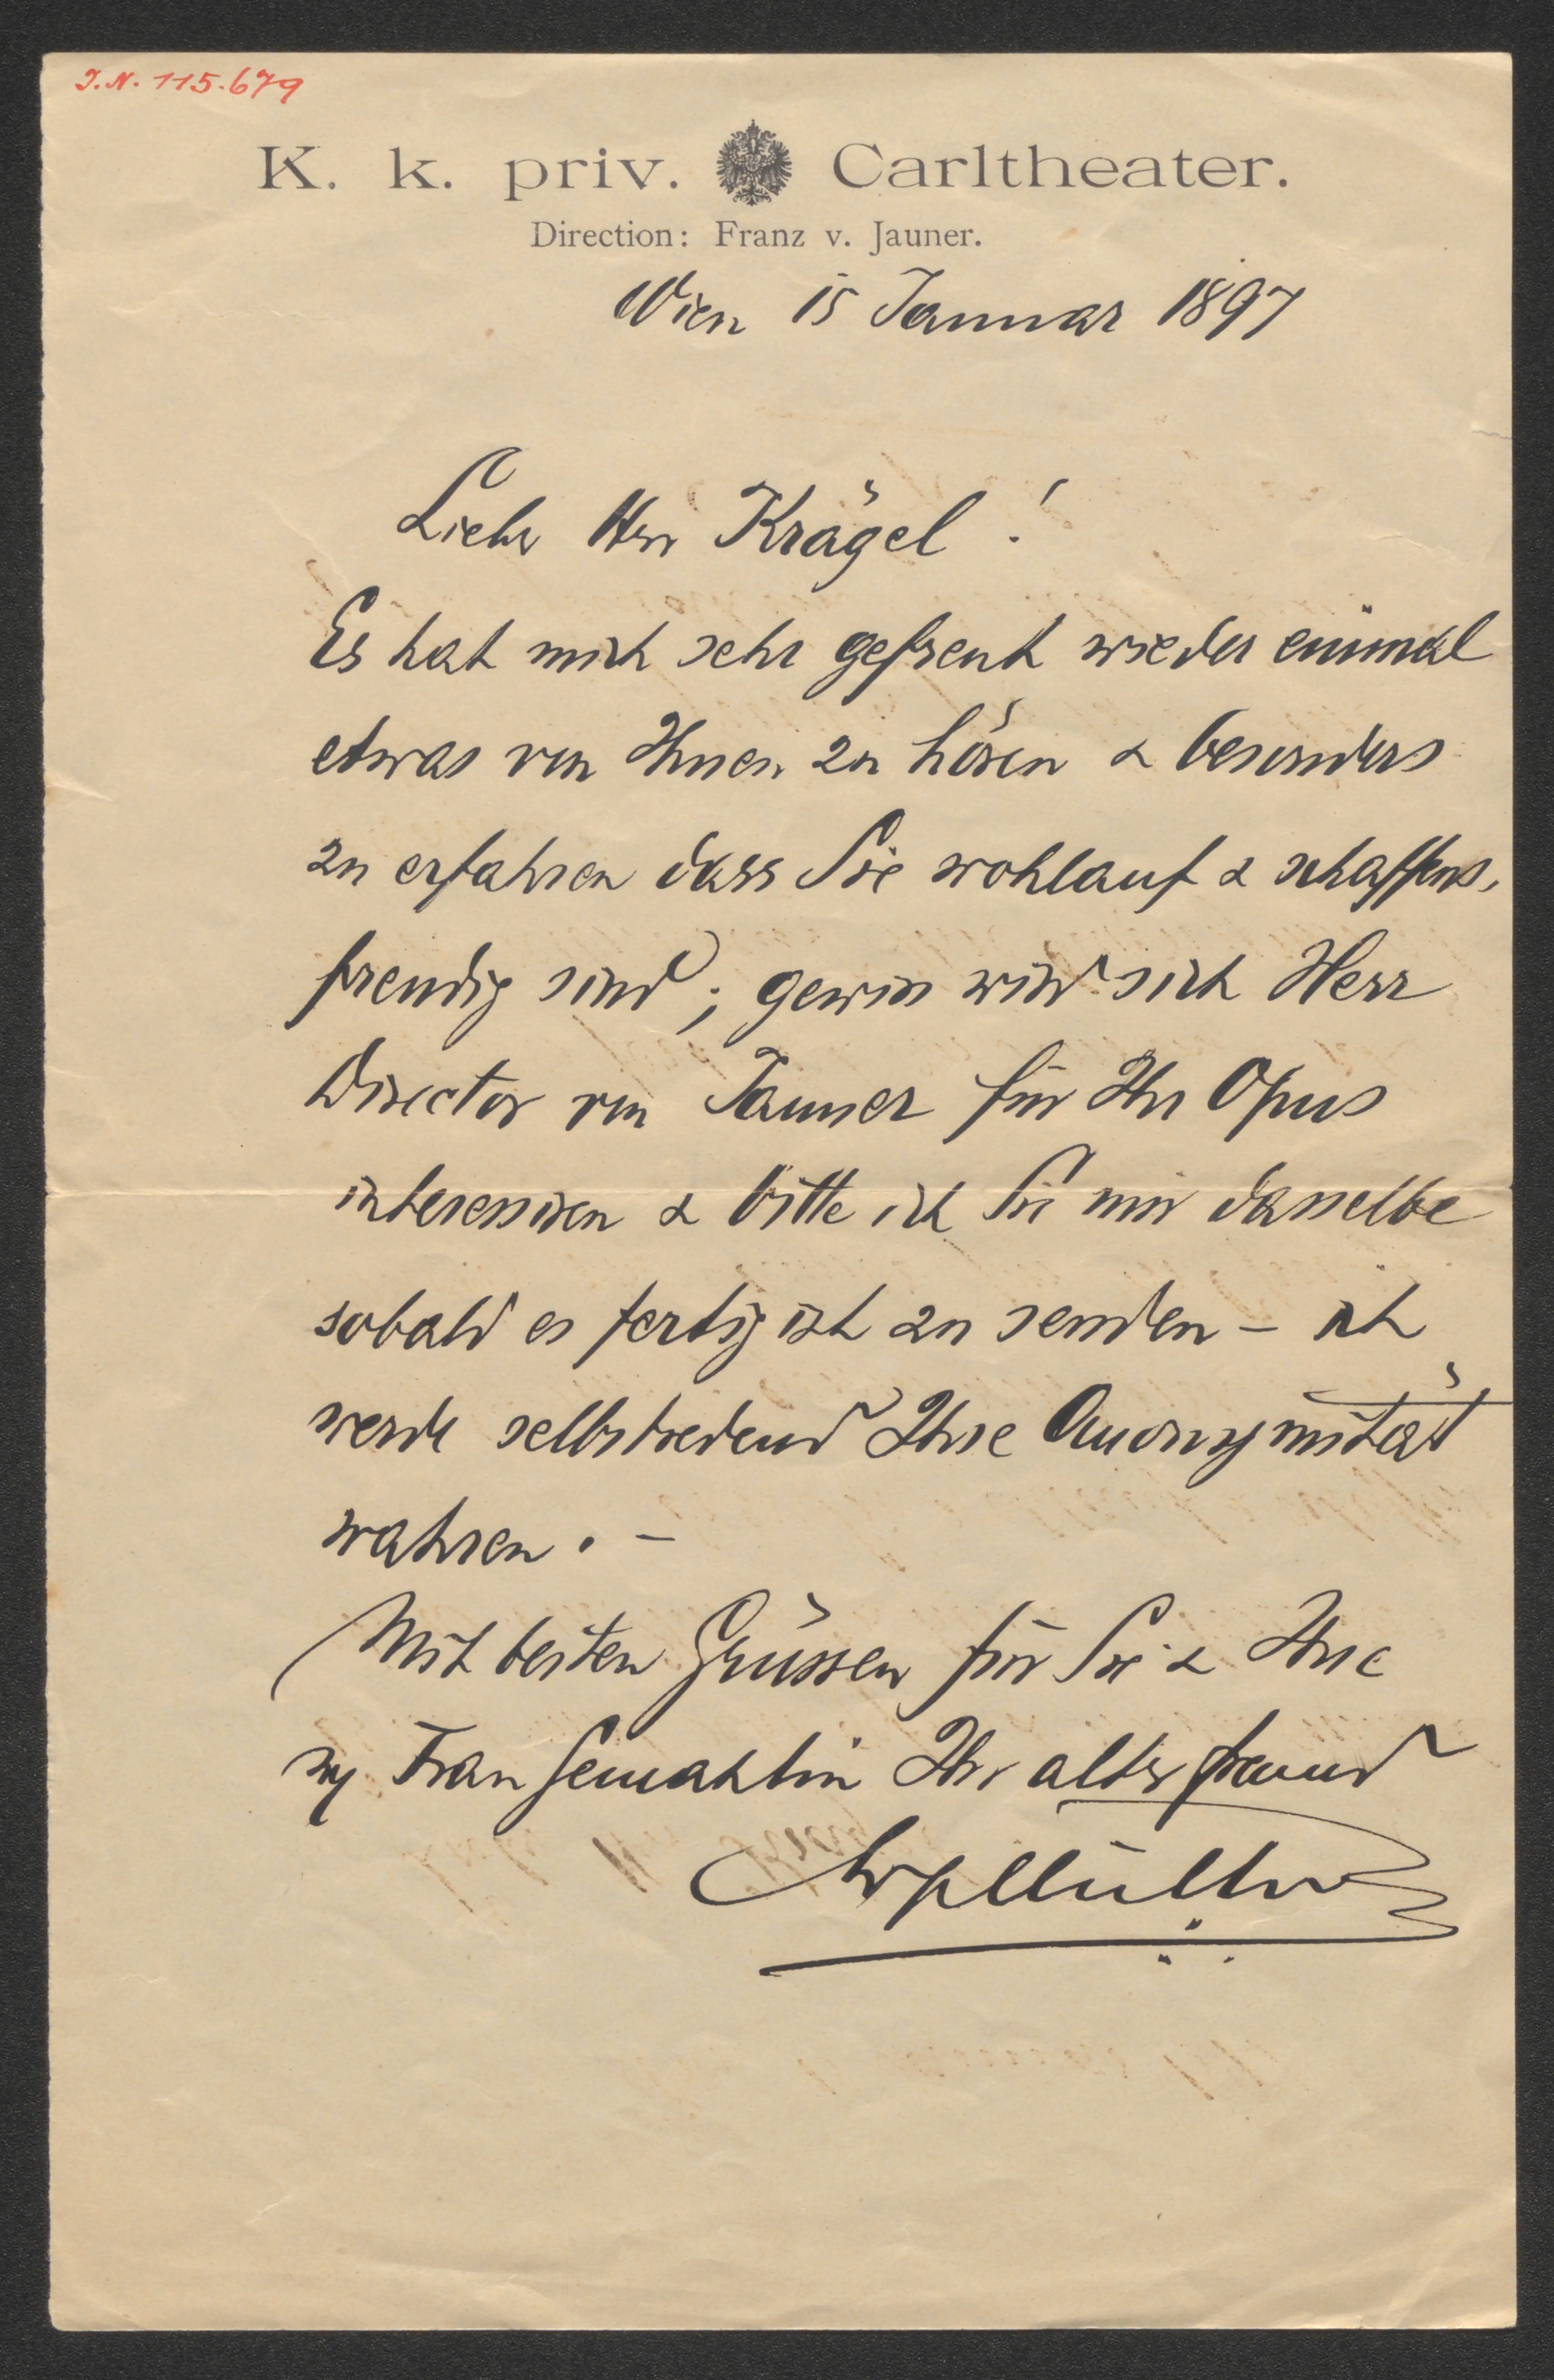 J.N. 115.679
K. k. priv. Carltheater.
Direction: Franz v. Jauner.
Wien 15 Januar 1897
Lieber Herr Krägel!
Es hat mich sehr gefreut wieder einmal
etwas von Ihnen zu hören & besonders
zu erfahren dass Sie wohlauf & schaffens-
freudig sind; gewiss wird sich Herr
Director von Jauner für Ihr Opus
interessiren & bitte ich Sie mir dasselbe
sobald es fertig ist zu senden – ich
werde selbstredend Ihre Anonymität
wahren. –
Mit besten Grüssen für Sie & Ihre
Frau Gemahlin Ihr alter Freund
Müller